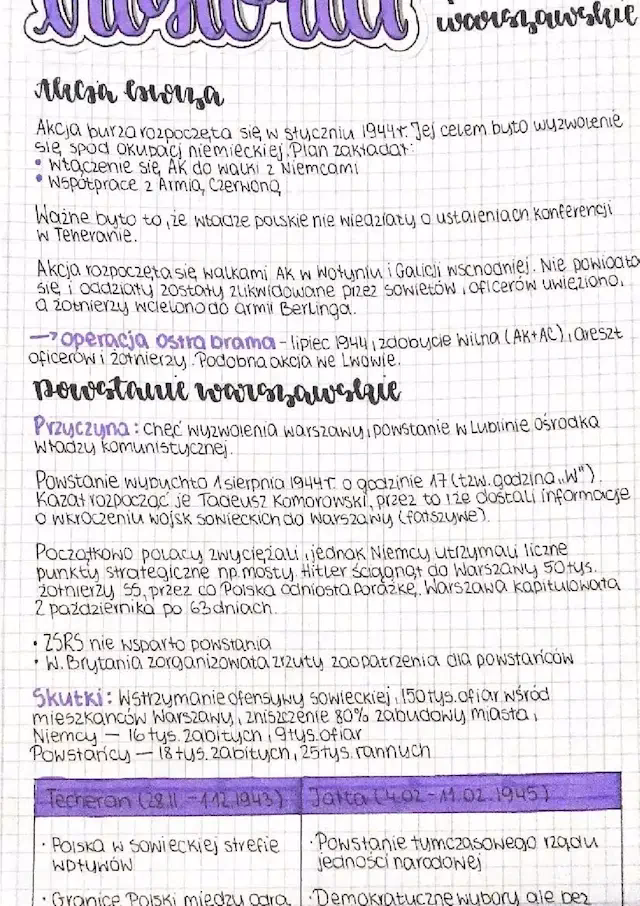 historia
warszawskie
Akcja burza
Akcja burza rozpoczęta się w styczniu 1944r. Jej celem było wyzwolenie
się spod okupacji niemieckiej. Plan zakładał:
• włączenie się AK do walki z Niemcami
• współprace z Armią Czerwoną
Ważne było to, że władze polskie nie wiedziały o ustaleniach konferencji
w Teheranie.
Akcja rozpoczęta się walkami AK w Wołyniu i Galicji wschodniej. Nie powiodło
się i oddziały zostały zlikwidowane przez sowietów, oficerów uwięziono,
a żołnierzy wcielono do armii Berlinga.
→ operacja ostra brama - lipiec 1944, zdobycie Wilna (AK+AC), areszt
oficerów i żołnierzy. Podobna akcja we Lwowie.
powstanie warszawskie
Przyczyna: chęć wyzwolenia warszawy, powstanie w Lublinie ośrodka
władzy komunistycznej.
Powstanie wybuchło 1 sierpnia 1944r. o godzinie 17 (tzw. godzina „W").
Kazał rozpocząć je Tadeusz Komorowski, przez to iże dostali informacje
o wkroczeniu wojsk sowieckich do Warszawy (fałszywe).
Początkowo polacy zwyciężali, jednak Niemcy utrzymali liczne
punkty strategiczne np. mosty. Hitler ściągnął do Warszawy 50 tys.
żołnierzy SS, przez co Polska odniosła porażkę. Warszawa kapitulowała
2 października po 63 dniach.
• ZSRS nie wsparło powstania
• W. Brytania zorganizowała zrzuty zaopatrzenia dla powstańców
Skutki: wstrzymanie ofensywy sowieckiej, 150 tys. ofiar wśród
mieszkańców Warszawy, zniszczenie 80% zabudowy miasta,
Niemcy — 16 tys. zabitych, 9 tys. ofiar
Powstańcy — 18 tys. zabitych, 25 tys. rannych
Techeran (28.11. - 1.12.1943) Jałta (4.02 - 11.02.1945)
• Polska w sowieckiej strefie
wpływów
• Powstanie tymczasowego rządu
jedności narodowej
• Granice Polski między Odrą,
• Demokratyczne wybory ale bez